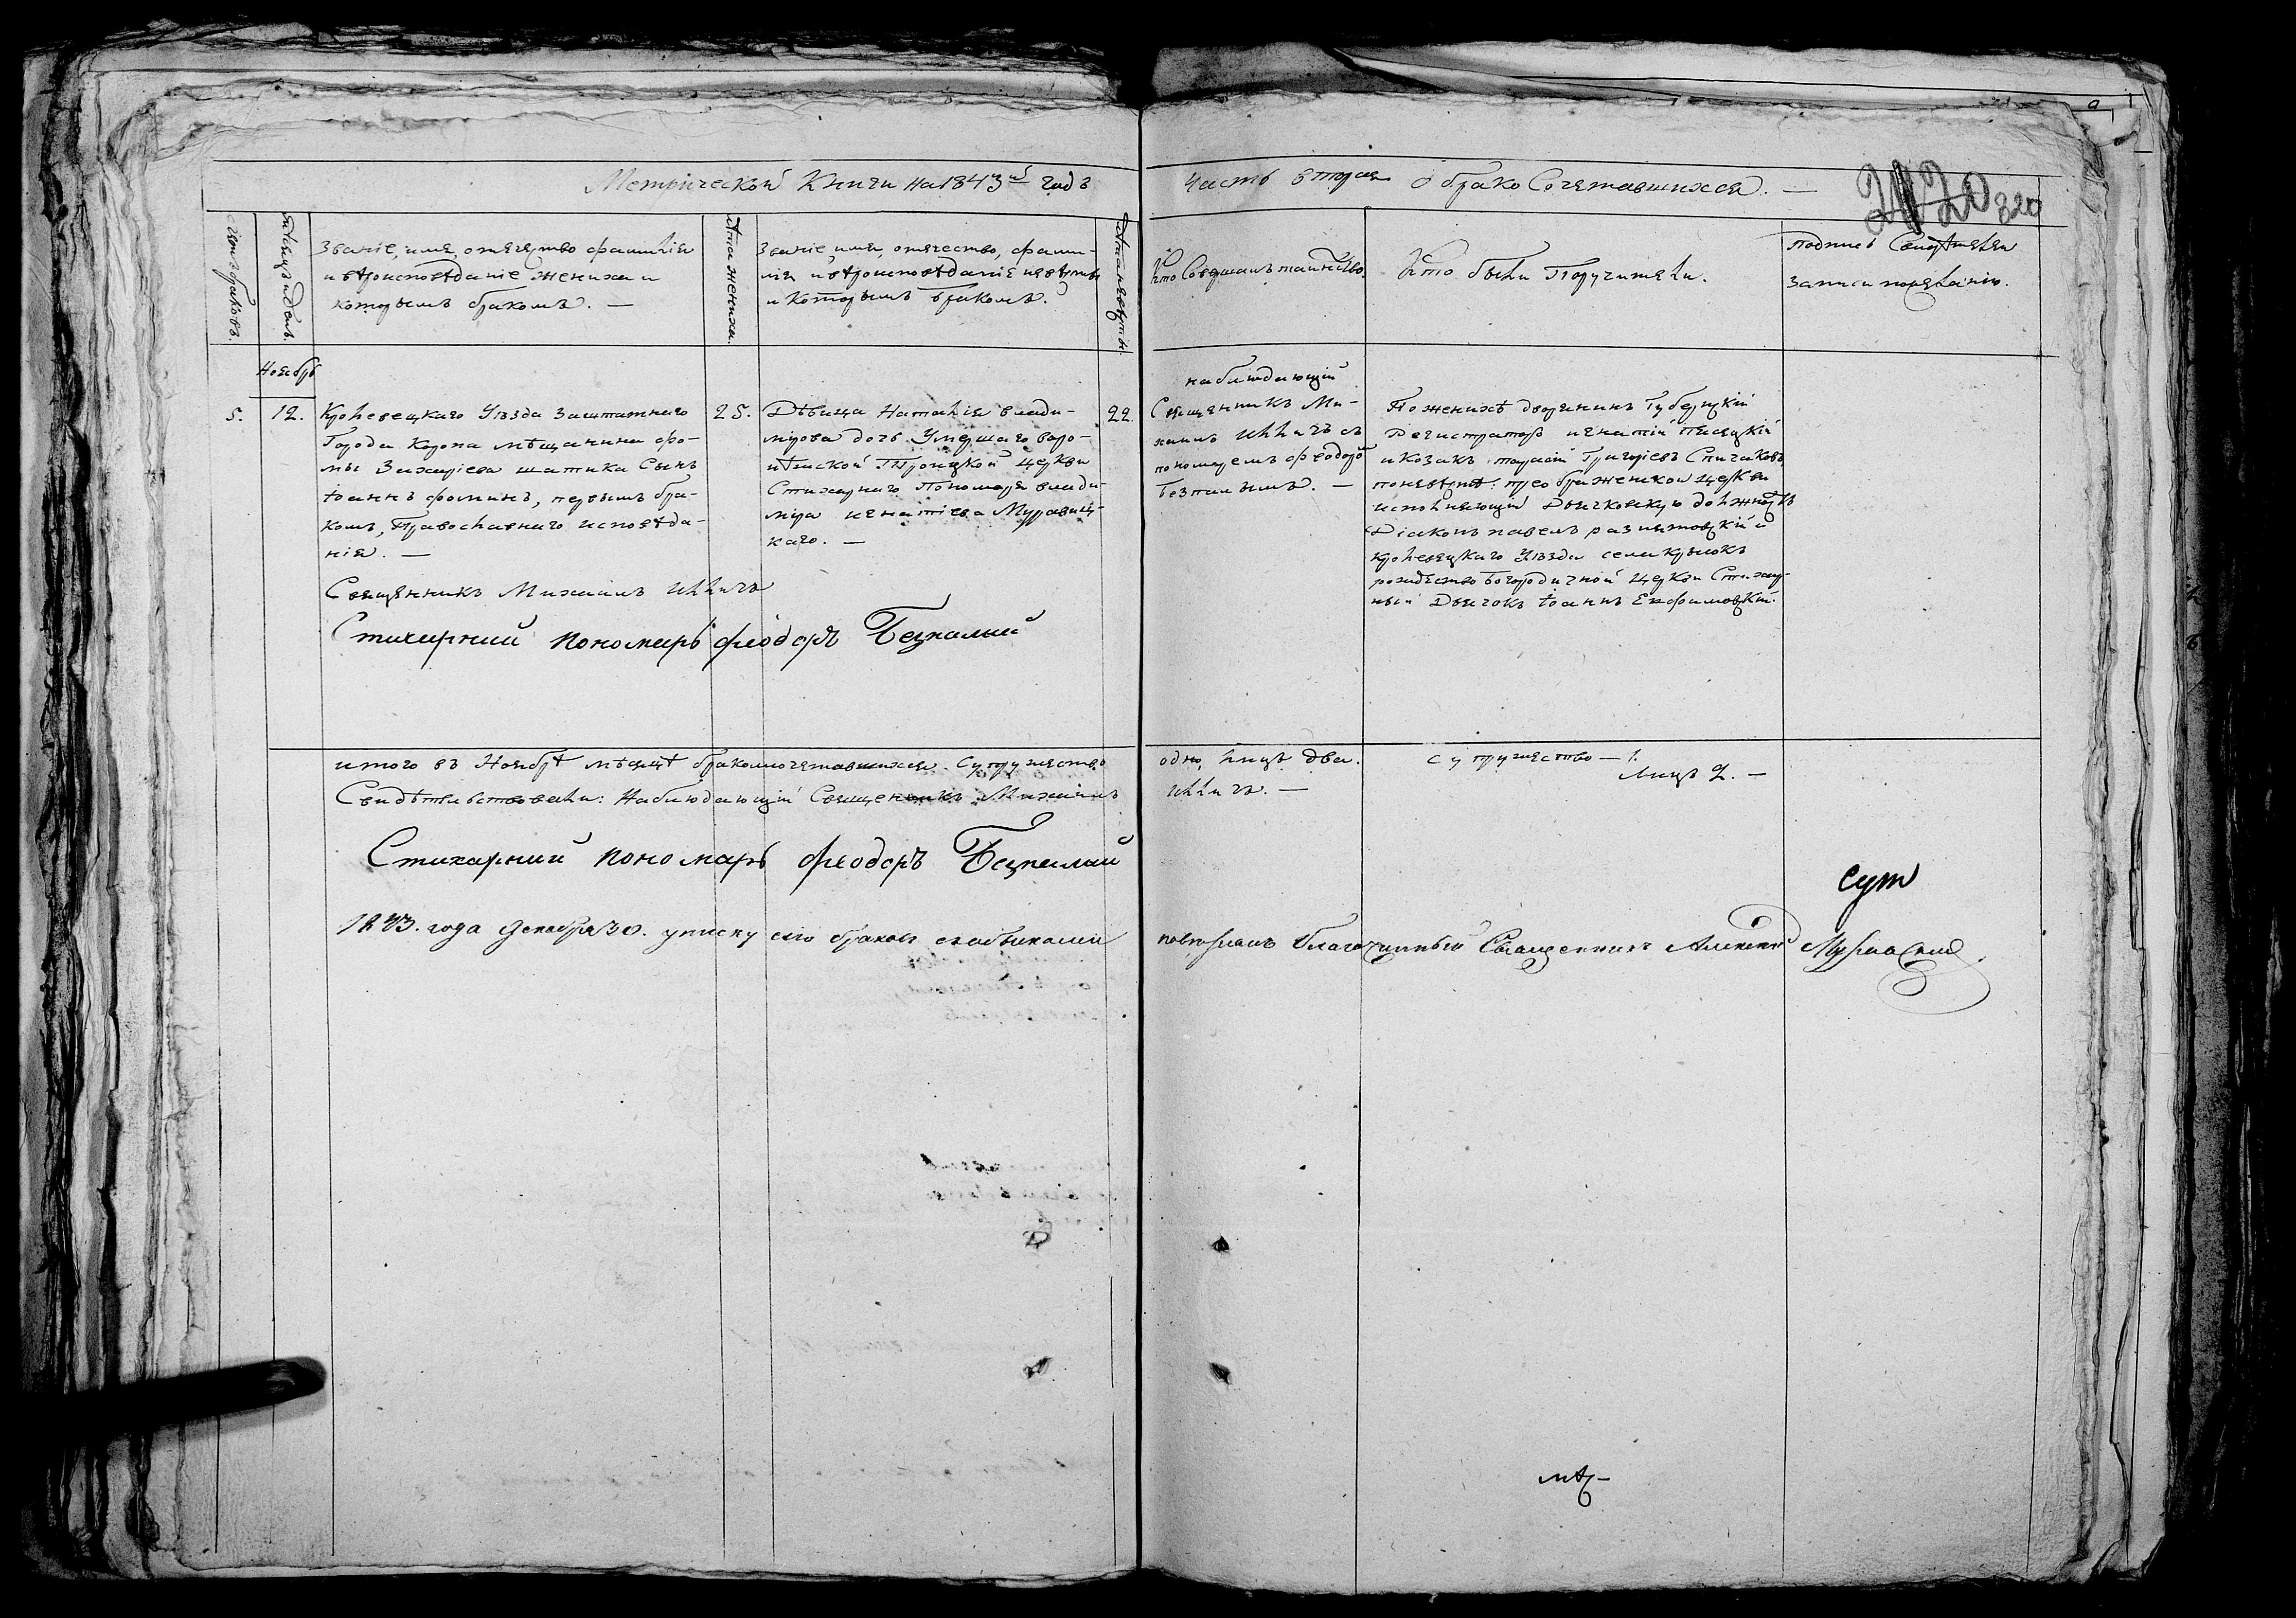 Метрической Книги на 1843й годъ
часть вторая о бракосочетавшихся. —
320
Счетъ браковъ.
Мѣсяцъ и день.
Званіе, имя, отечество фамилія
и вѣроисповѣданіе жениха и
которымъ бракомъ. —
Лѣта жениха.
Званіе, имя, отечество, фами-
лія и вѣроисповѣданіе невѣсты
и которымъ бракомъ.
Лѣта невѣсты.
Кто Совершалъ таинство.
Кто были Поручители.
подпись Свидѣтелей
записи по желанію.
Ноябрь
5.
12.
Кролевецкаго Уѣзда Заштатнаго
Города Коропа мѣщанина Фо-
мы Захаріева шатика Сынъ
Іоаннъ Фоминъ, первымъ бра-
комъ, Православнаго исповѣда-
нія. —
Священникъ Михаилъ Илличъ
Стихарний пономарь Феодоръ Безпалий
25.
Дѣвица Наталія влади-
мірова дочь Умершаго воро-
нѣжской Троицкой церкви
Стихарнаго Пономаря влади-
міра игнатіева Муравиц-
каго. —
22.
наблюдающій
Священникъ Ми-
хаилъ Илличъ съ
пономаремъ Феодоро
Безпалымъ. —
По женихѣ дворянинъ Губернскій
Регистраторъ игнатій
и козакъ Григоріевъ Спичаковъ
по невѣстѣ: преображенской церкви
исполняющій Дьячковскую должность
Діаконъ павелъ и
кролевецкаго Уѣзда села
рождество Богородичной церкви Стихар-
ный Дьячокъ Іоаннъ Ефимовскій.
итого въ Ноябрѣ мѣсяцѣ бракомъ сочетавшихся. Супружество
одно, лицъ два.
супружество — 1.
лицъ 2. —
Свидѣтельствовали: Наблюдающій Священникъ Михаилъ
Илличъ. —
Стихарний пономарь Феодоръ Безпалий
1843. года Декабря 30. записку сію браковъ
повѣрялъ благочинный Священникъ Алексѣй